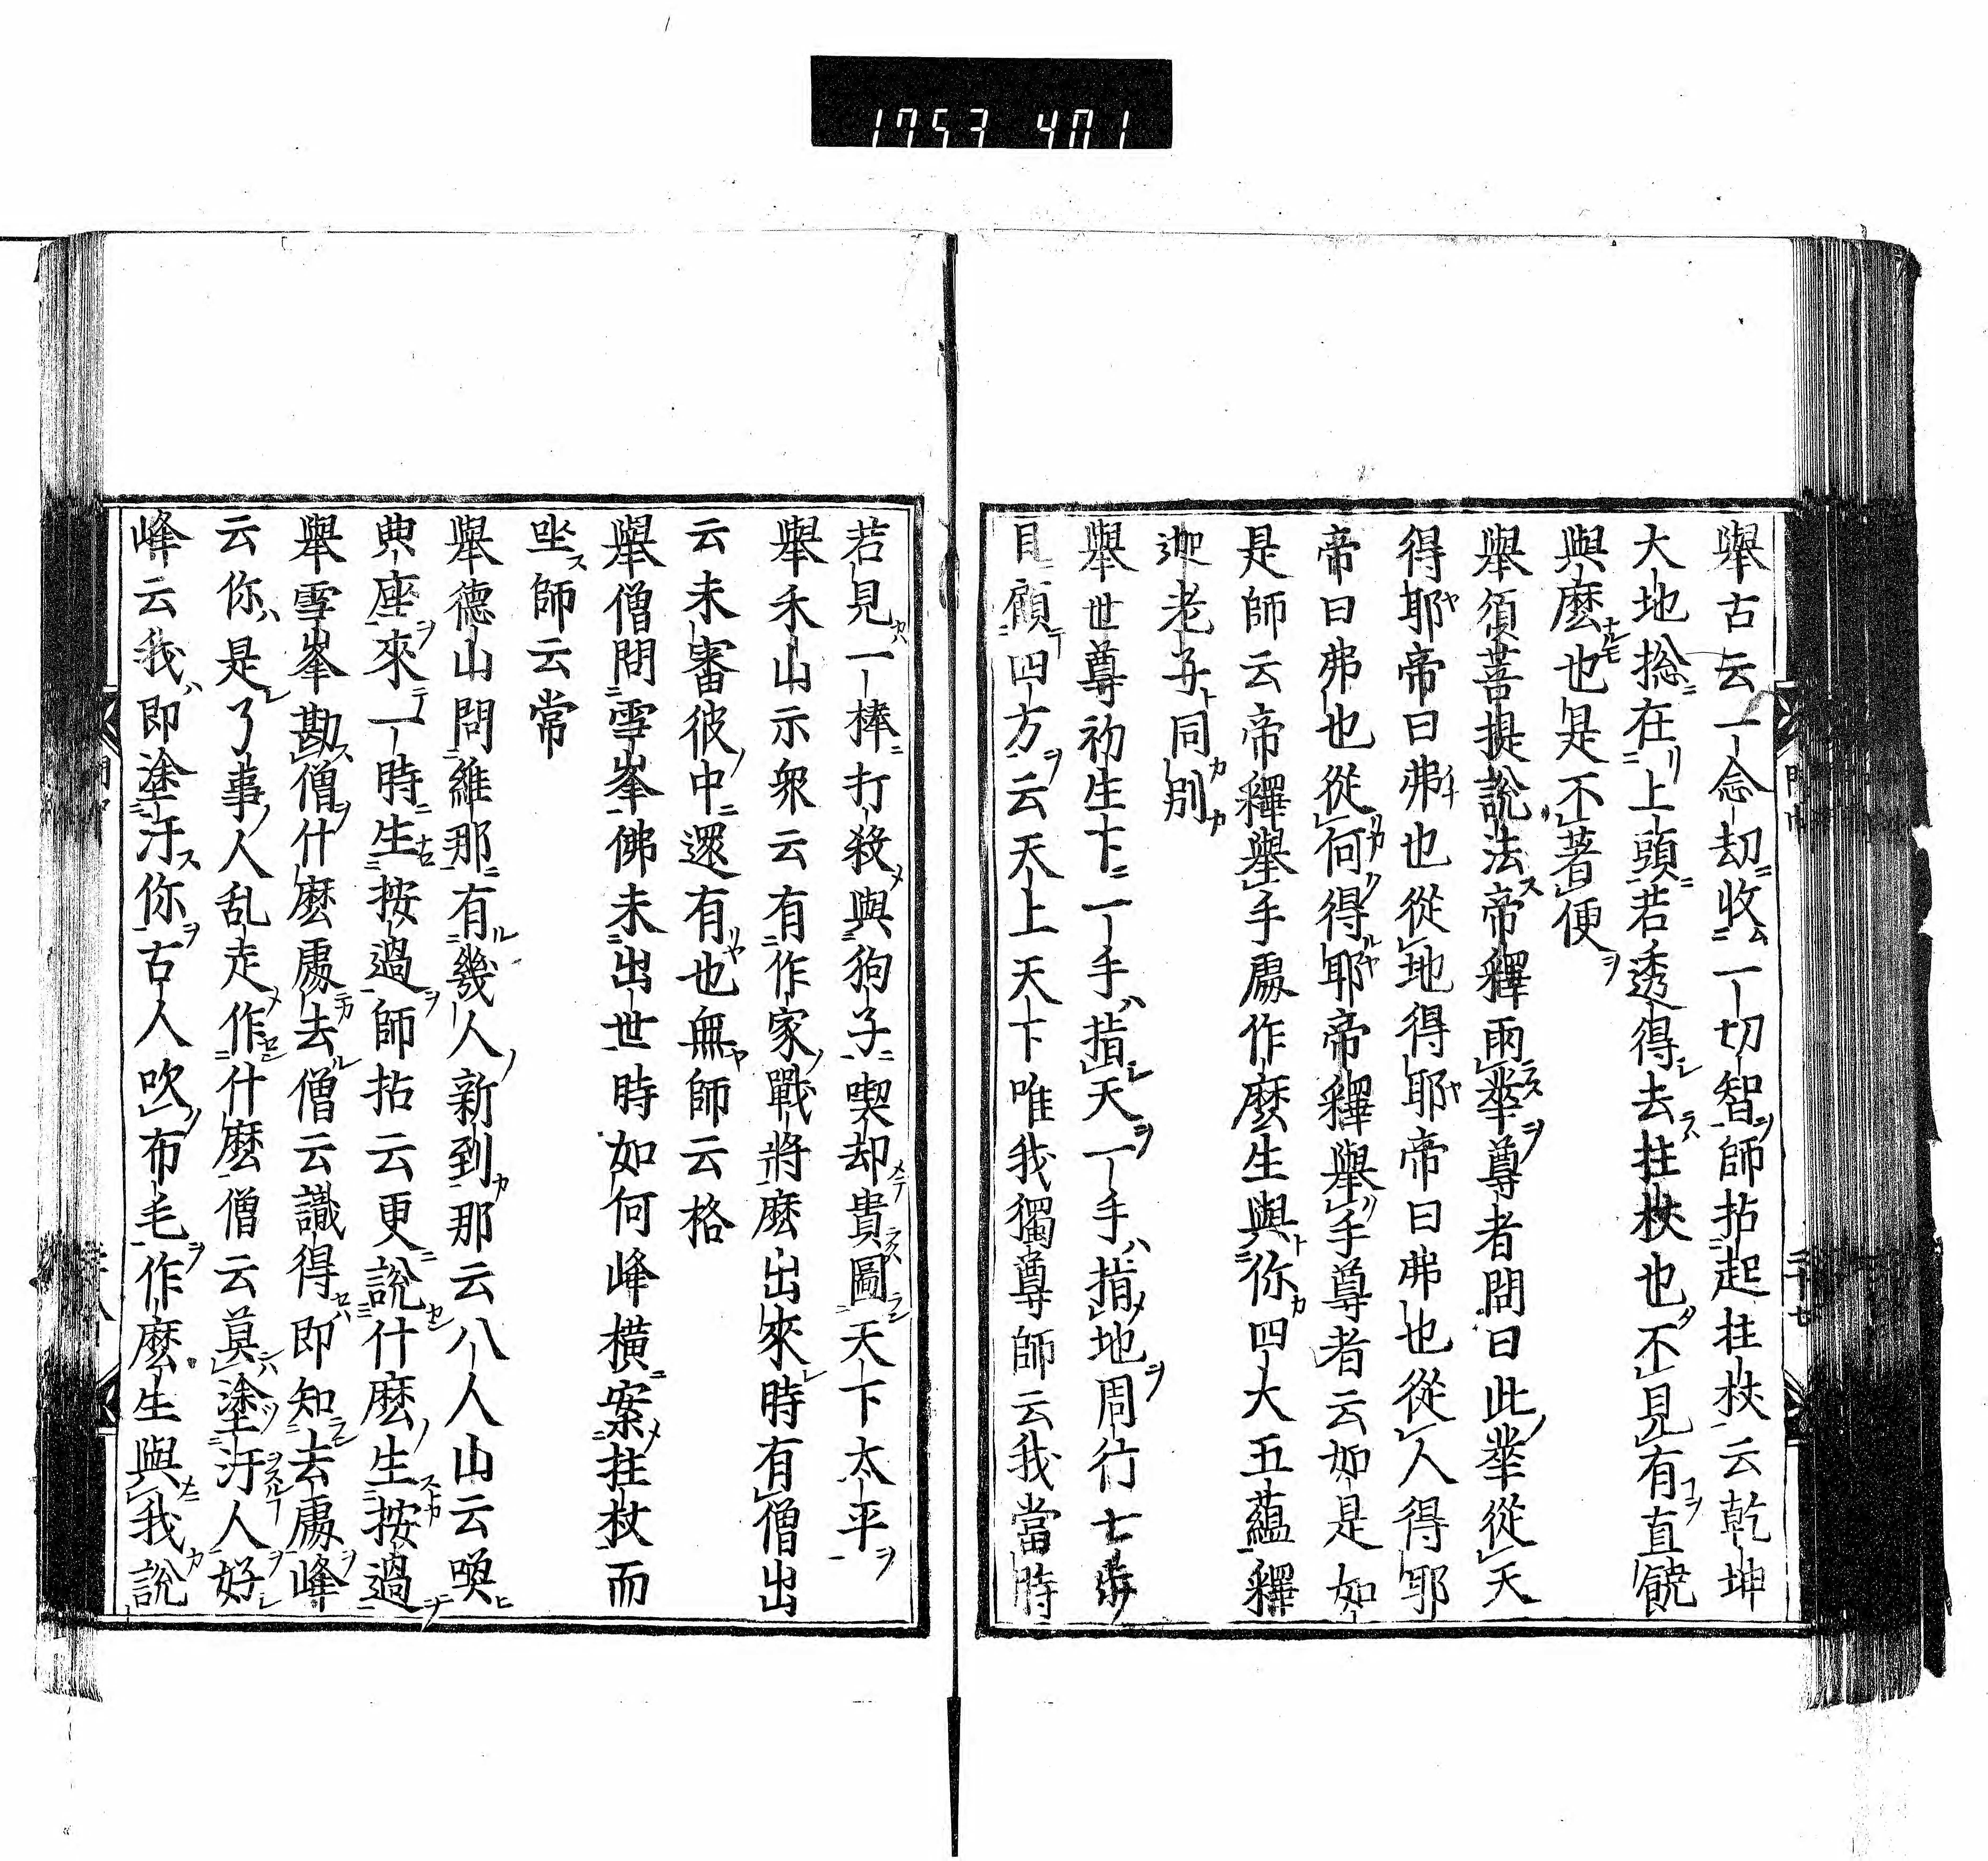 1753 401
舉古云一念劫收一切智師拈起拄杖云乾坤
大地総在上頭若透得去拄杖也不見有直饒
與麼也是不著便
舉須菩提說法帝釋雨華尊者問曰此華從天
得耶帝曰弗也從地得耶帝曰弗也從人得耶
帝曰弗也從何得耶帝釋舉手尊者云如是如
是師云帝釋舉手處作麼生與你四大五蘊釋
迦老子同別
舉世尊初生下一手指天一手指地周行七步
目顧四方云天上天下唯我獨尊師云我當時
若見一棒打殺與狗子喫却貴圖天下太平
舉禾山示衆云有作家戰將麼出來時有僧出
云未審彼中還有也無師云格
舉僧問雪峯佛未出世時如何峰橫案拄杖而
坐師云常
舉德山問維那有幾人新到那云八人山云喚
典座來一時生按過師拈云更說什麼生按過
舉雪峯勘僧什麼處去僧云識得即知去處峰
云你是了事人乱走作什麼僧云莫塗汙人好
峰云我即塗汙你古人吹布毛作麼生與我說